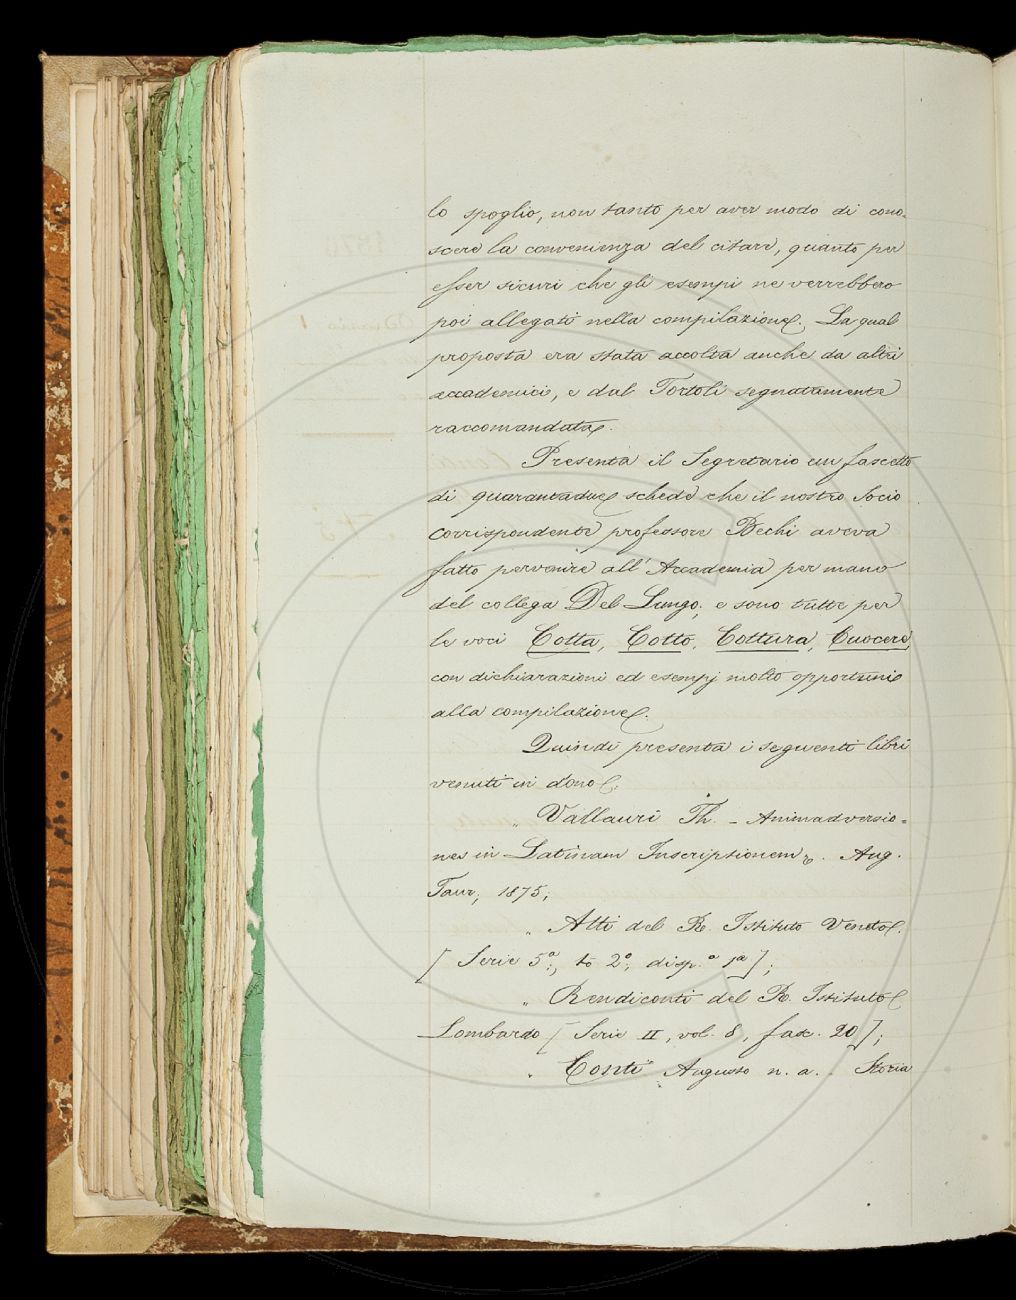 lo spoglio, non tanto per aver modo di cono-
scere la convenienza del citare, quanto per
esser sicuri che gli esempi ne verrebbero
poi allegati nella compilazione. La qual
proposta era stata accolta anche da altri
accademici, e dal Tortoli segnatamente
raccomandata.
Presenta il Segretario un fascetto
di quarantadue schede che il nostro Socio
corrispondente professore Bechi aveva
fatto pervenire all'Accademia per mano
del collega Del Lungo; e sono tutte per
le voci Cotta, Cotto, Cottura, Cuocere,
con dichiarazioni ed esempj molto opportuni
alla compilazione.
Quindi presenta i seguenti libri
venuti in dono:
„ Vallauri Th. - Animadversio=
nes in Latinam Inscriptionem. Aug.
Taur, 1875;
„ Atti del R. Istituto Veneto.
[Serie 5ª, to 2º, disp.ª 1ª];
„ Rendiconti del R. Istituto
Lombardo [Serie II, vol. 8, fasc. 20];
„ Conti Augusto n. a. - Storia